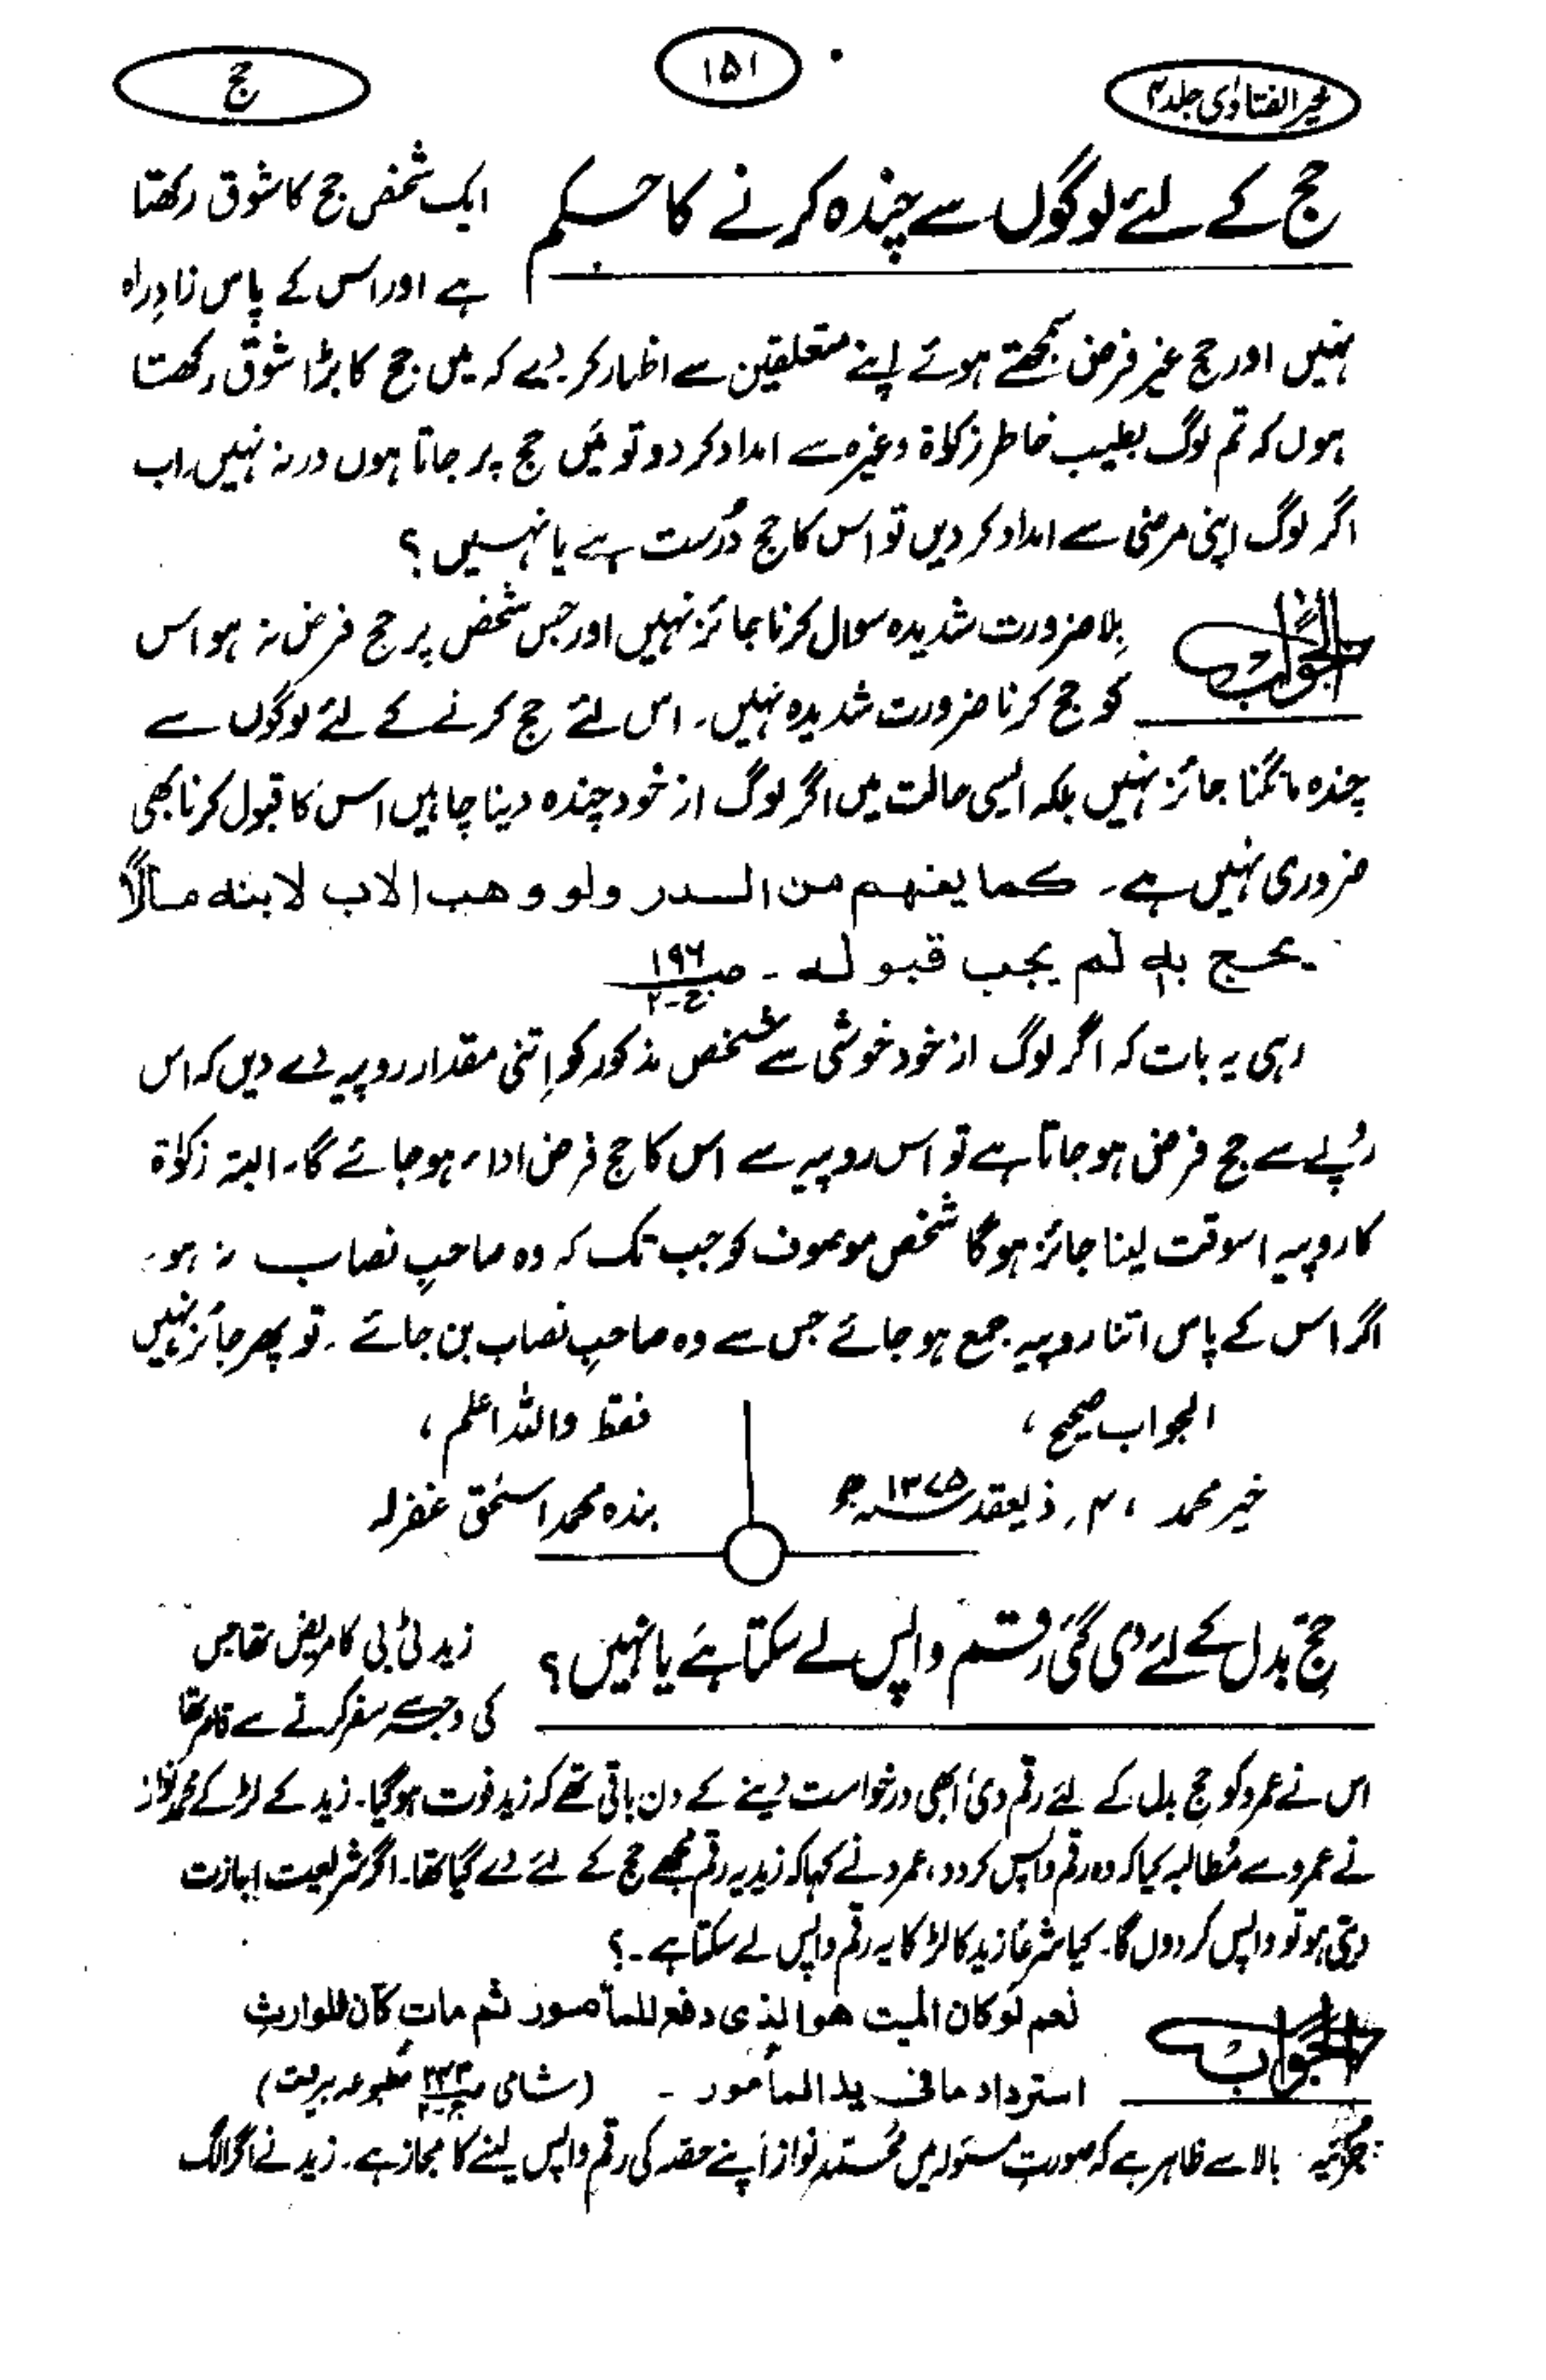 خیر الفتاوٰی جلد ۴
۱۵۱
حج
حج کے لئے لوگوں سے چندہ کرنے کا حکم
ایک شخص حج کا شوق رکھتا
ہے اور اس کے پاس زادِ راہ
نہیں اور حج غیر فرض سمجھتے ہوئے اپنے متعلقین سے اظہار کر دیے کہ میں حج کا بڑا شوق رکھتا
ہوں کہ تم لوگ بطیب خاطر زکوٰۃ وغیرہ سے امداد کر دو تو میں حج پر جاتا ہوں ورنہ نہیں، اب
اگر لوگ اپنی مرضی سے امداد کر دیں تو اس کا حج درست ہے یا نہیں؟
الجواب
بلا ضرورت شدیدہ سوال کرنا جائز نہیں اور جس شخص پر حج فرض نہ ہو اس
کو حج کرنا ضرورت شدیدہ نہیں۔ اس لئے حج کرنے کے لئے لوگوں سے
چندہ مانگنا جائز نہیں بلکہ ایسی حالت میں اگر لوگ از خود چندہ دینا چاہیں اس کا قبول کرنا بھی
ضروری نہیں ہے۔ کما یفہم من الدر ولو وھب الاب لابنہ مالاً
یحج بہ لم یجب قبولہ۔ ص۱۹۶ ج-۲
رہی یہ بات کہ اگر لوگ از خود خوشی سے شخص مذکور کو اِتنی مقدار روپیہ دے دیں کہ اس
رُپے سے حج فرض ہو جاتا ہے تو اس روپیہ سے اس کا حج فرض اداء ہو جائے گا۔ البتہ زکوٰۃ
کا روپیہ اسوقت لینا جائز ہوگا شخص موصوف کو جب تک کہ وہ صاحبِ نصاب نہ ہو۔
اگر اس کے پاس اتنا روپیہ جمع ہو جائے جس سے وہ صاحبِ نصاب بن جائے۔ تو پھر جائز نہیں
الجواب صحیح،
فقط واللہ اعلم،
خیر محمد، ۴؍ ذیعقد ۱۳۷۵ھ
بندہ محمد اسحٰق غفرلہ
حجِ بدل کے لئے دی گئی رقم واپس لے سکتا ہے یا نہیں؟
زید ٹی بی کا مریض تھا جس
کی وجہ سے سفر کرنے سے قاصر تھا
اس نے عمرو کو حج بدل کے لئے رقم دی، ابھی درخواست دینے کے دن باقی تھے کہ زید فوت ہوگیا۔ زید کے لڑکے محمد نواز
نے عمرو سے مُطالبہ کیا کہ وہ رقم واپس کر دو، عمرو نے کہا کہ زید یہ رقم مجھے حج کے لئے دے گیا تھا۔ اگر شریعت اجازت
دیتی ہو تو واپس کر دوں گا۔ کیا شرعًا زید کا لڑکا یہ رقم واپس لے سکتا ہے۔؟
الجواب
نعم لو کان المیت ھو الذی دفع للمأمور ثم مات کان للوارث
استرداد ما فی ید المأمور - (شامی مطبوعہ بیروت)
جزئیہ بالا سے ظاہر ہے کہ صورت مسئولہ میں محمد نواز اپنے حصہ کی رقم واپس لینے کا مجاز ہے۔ زید نے اگر الگ